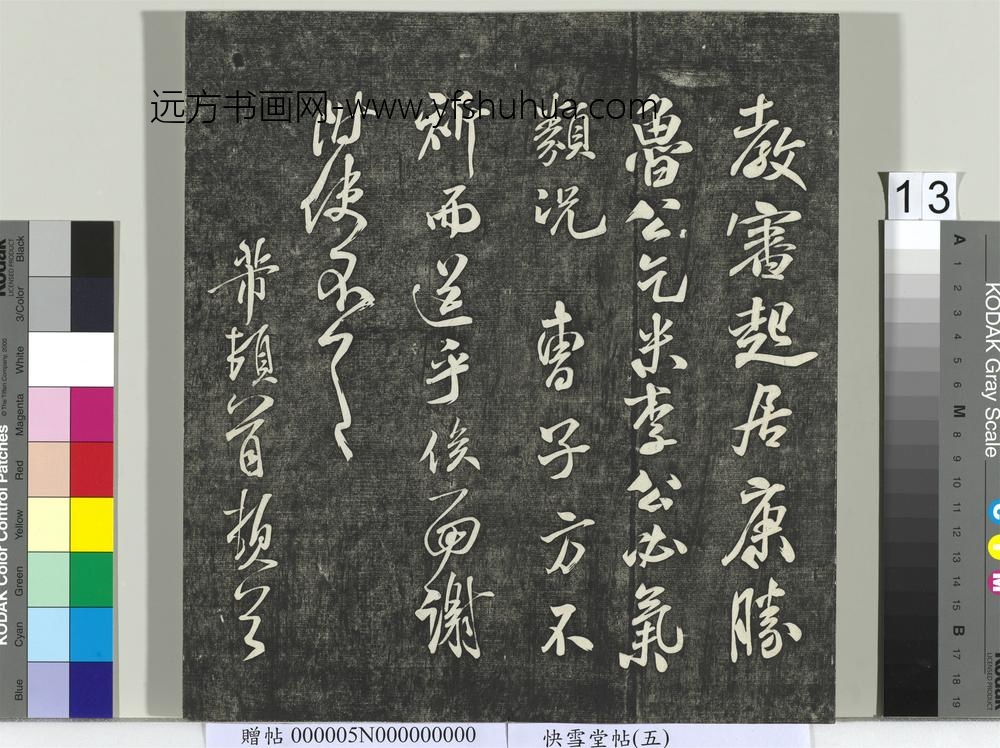 教審起居康勝
魯公乞米李公必氣
類况 曹子方不
斫而送乎俟面謝
附使不一一
芾頓首頓首
远方书画网-www.yfshuhua.com
13
贈帖 000005N000000000
快雪堂帖(五)
KODAK Color Control Patches
© The Tiffen Company, 2000
Kodak
LICENSED PRODUCT
Blue
Cyan
Green
Yellow
Red
Magenta
White
3/Color
Black
KODAK Gray Scale
C
Y
M
Kodak
LICENSED PRODUCT
A 1 2 3 4 5 6 M 8 9 10 11 12 13 14 15 B 17 18 19